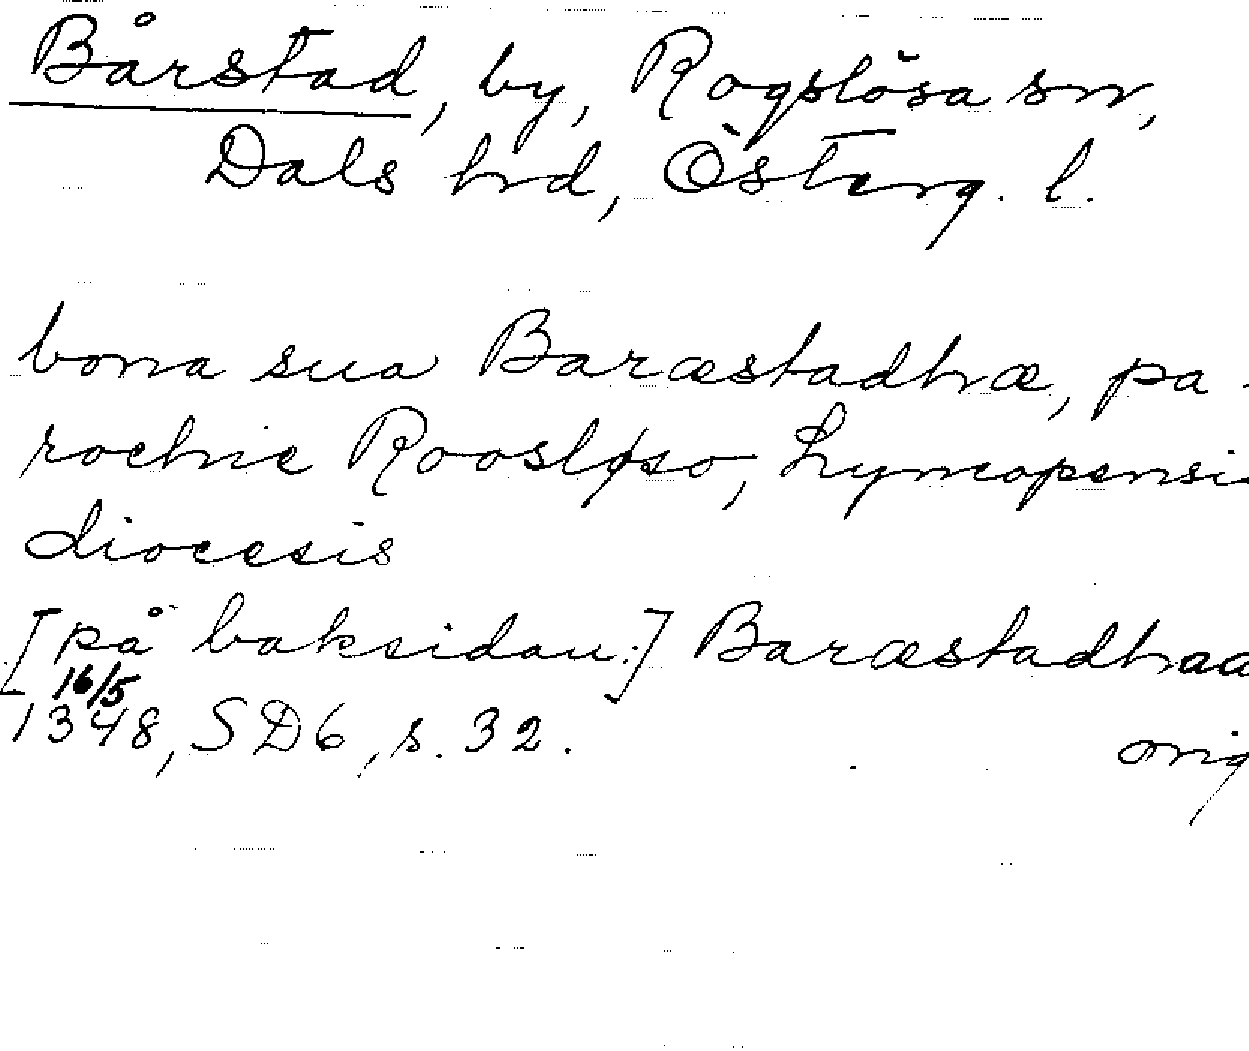 Bårstad, by, Rogslösa sn,
Dals hd, Österg. l.
bona sua Baræstadhæ, pa-
rochie Roosløso, Lyncopensis
diocesis
[på baksidan:] Baræstadhaa
16/5
1348, SD6, s. 32.
orig